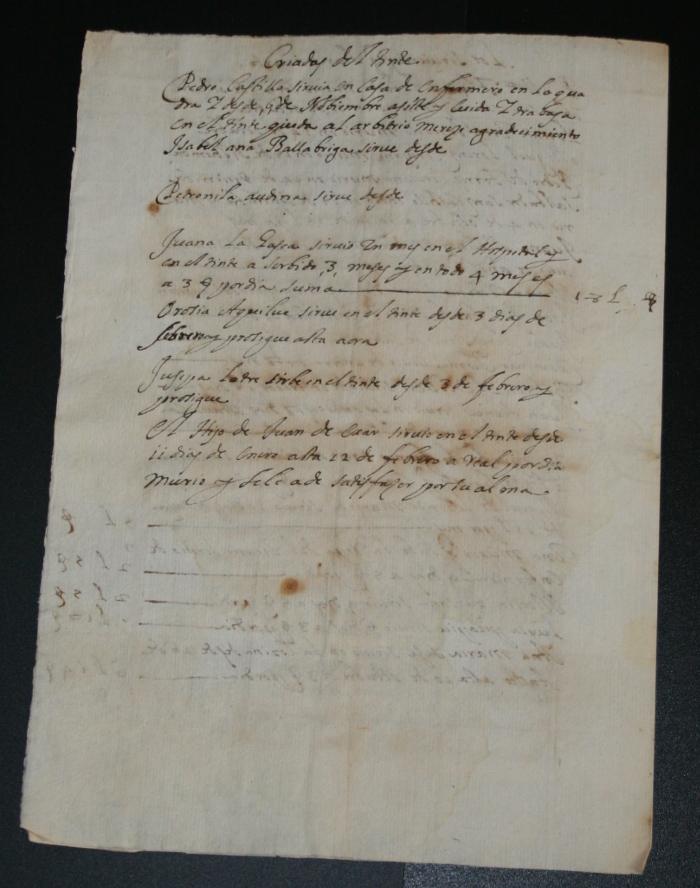 Criadas del tinte
Pedro Castilla siruia en casa de enfermero en la qua
dra Y desde 9 de Nobiembre asiste y cuida Y trabaja
en el tinte queda al arbitrio mereze agradecimiento
Isabel ana Ballabriga sirue desde
Petronila audina sirue desde
Juana La Gasca siruio un mes en el Hospital y
en el tinte a serbido 3 meses y en todo 4 meses
a 3 por dia suma
Orosia Aquilue sirue en el tinte desde 3 dias de
febrero y prosigue asta aora
Jusepa Lodre sirbe en el tinte desde 3 de febrero y
prosigue
El Hijo de Juan de siruio en el tinte desde
11 dias de Enero asta 12 de febrero a real por dia
Murio y se le a de satisfazer por su alma